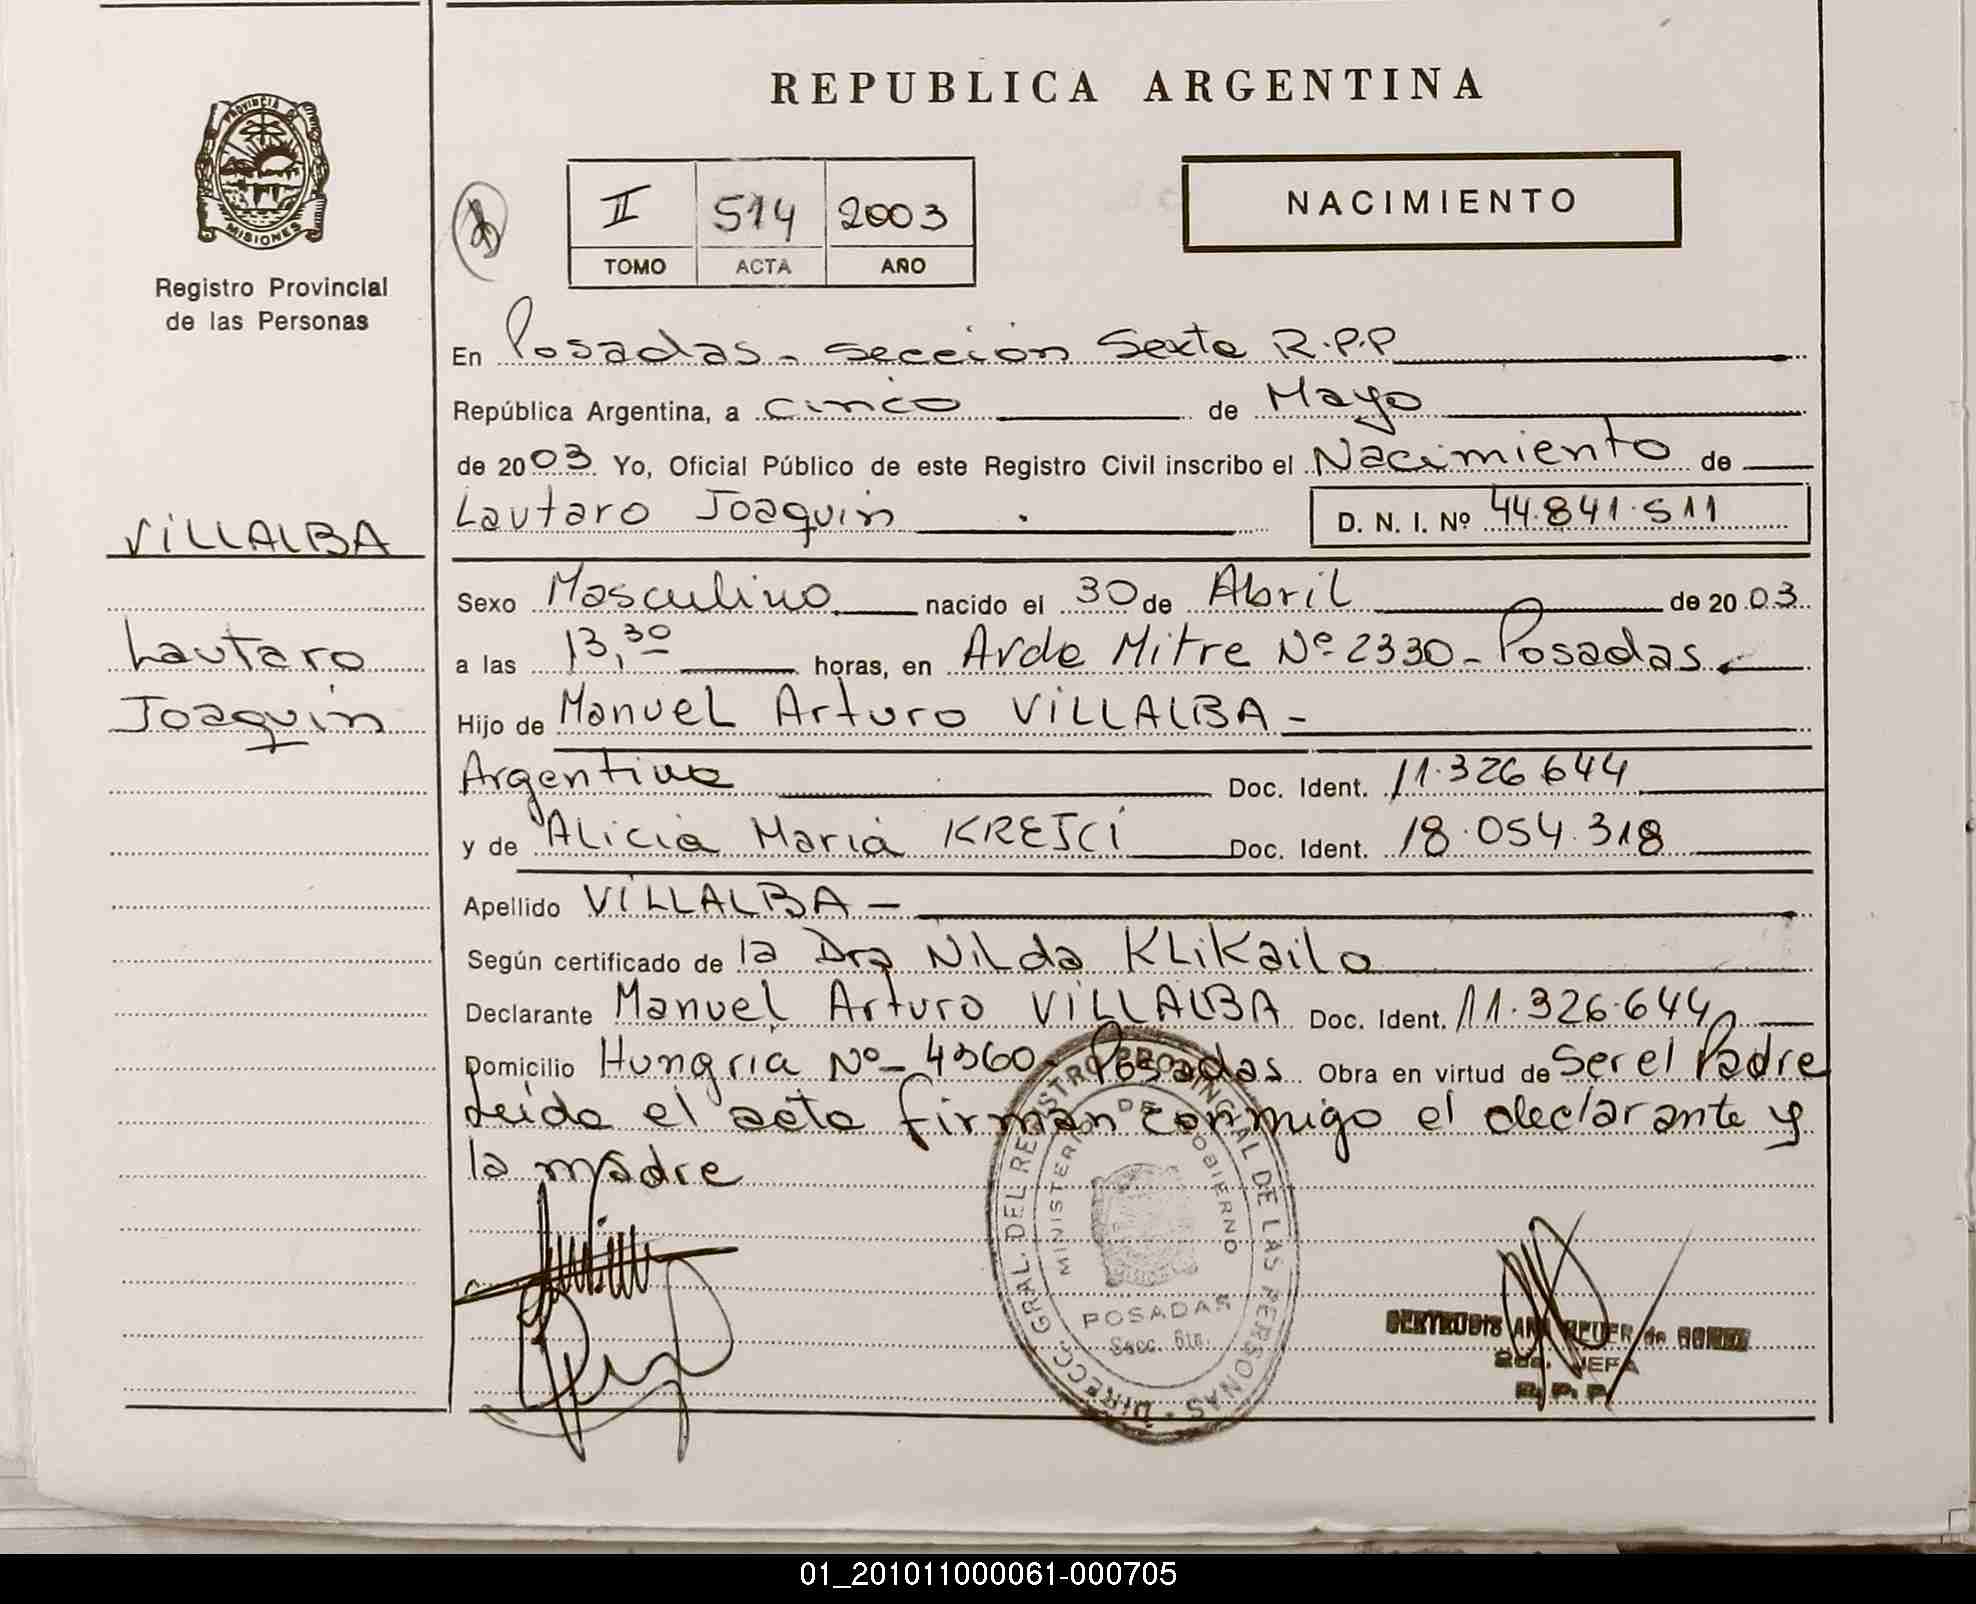 REPUBLICA ARGENTINA
PROVINCIA DE MISIONES
Registro Provincial
de las Personas
NACIMIENTO
II 514 2003
TOMO ACTA AÑO
En Posadas - sección Sexta R.P.P
República Argentina, a cinco de Mayo
de 2003. Yo, Oficial Público de este Registro Civil inscribo el Nacimiento de
Lautaro Joaquin D. N. I. Nº 44.841.511
VILLALBA
Lautaro
Joaquin
Sexo Masculino nacido el 30 de Abril de 2003.
a las 13,30 horas, en Avda Mitre Nº 2330 - Posadas
Hijo de Manuel Arturo VILLALBA -
Argentino Doc. Ident. 11.326.644
y de Alicia Maria KREJCI Doc. Ident. 18.054.318
Apellido VILLALBA -
Según certificado de la Dra Nilda KLIKailo
Declarante Manuel Arturo VILLALBA Doc. Ident. 11.326.644
Domicilio Hungria Nº - 4360. Posadas Obra en virtud de Ser el Padre
Leida el acta firman conmigo el declarante y
la madre
DIRECC. GRAL. DEL REGISTRO PROVINCIAL DE LAS PERSONAS
MINISTERIO DE GOBIERNO
POSADAS
Secc. 6ta.
GERTRUDIS ANA de
2da. JEFA
R.P.P.
01_201011000061-000705